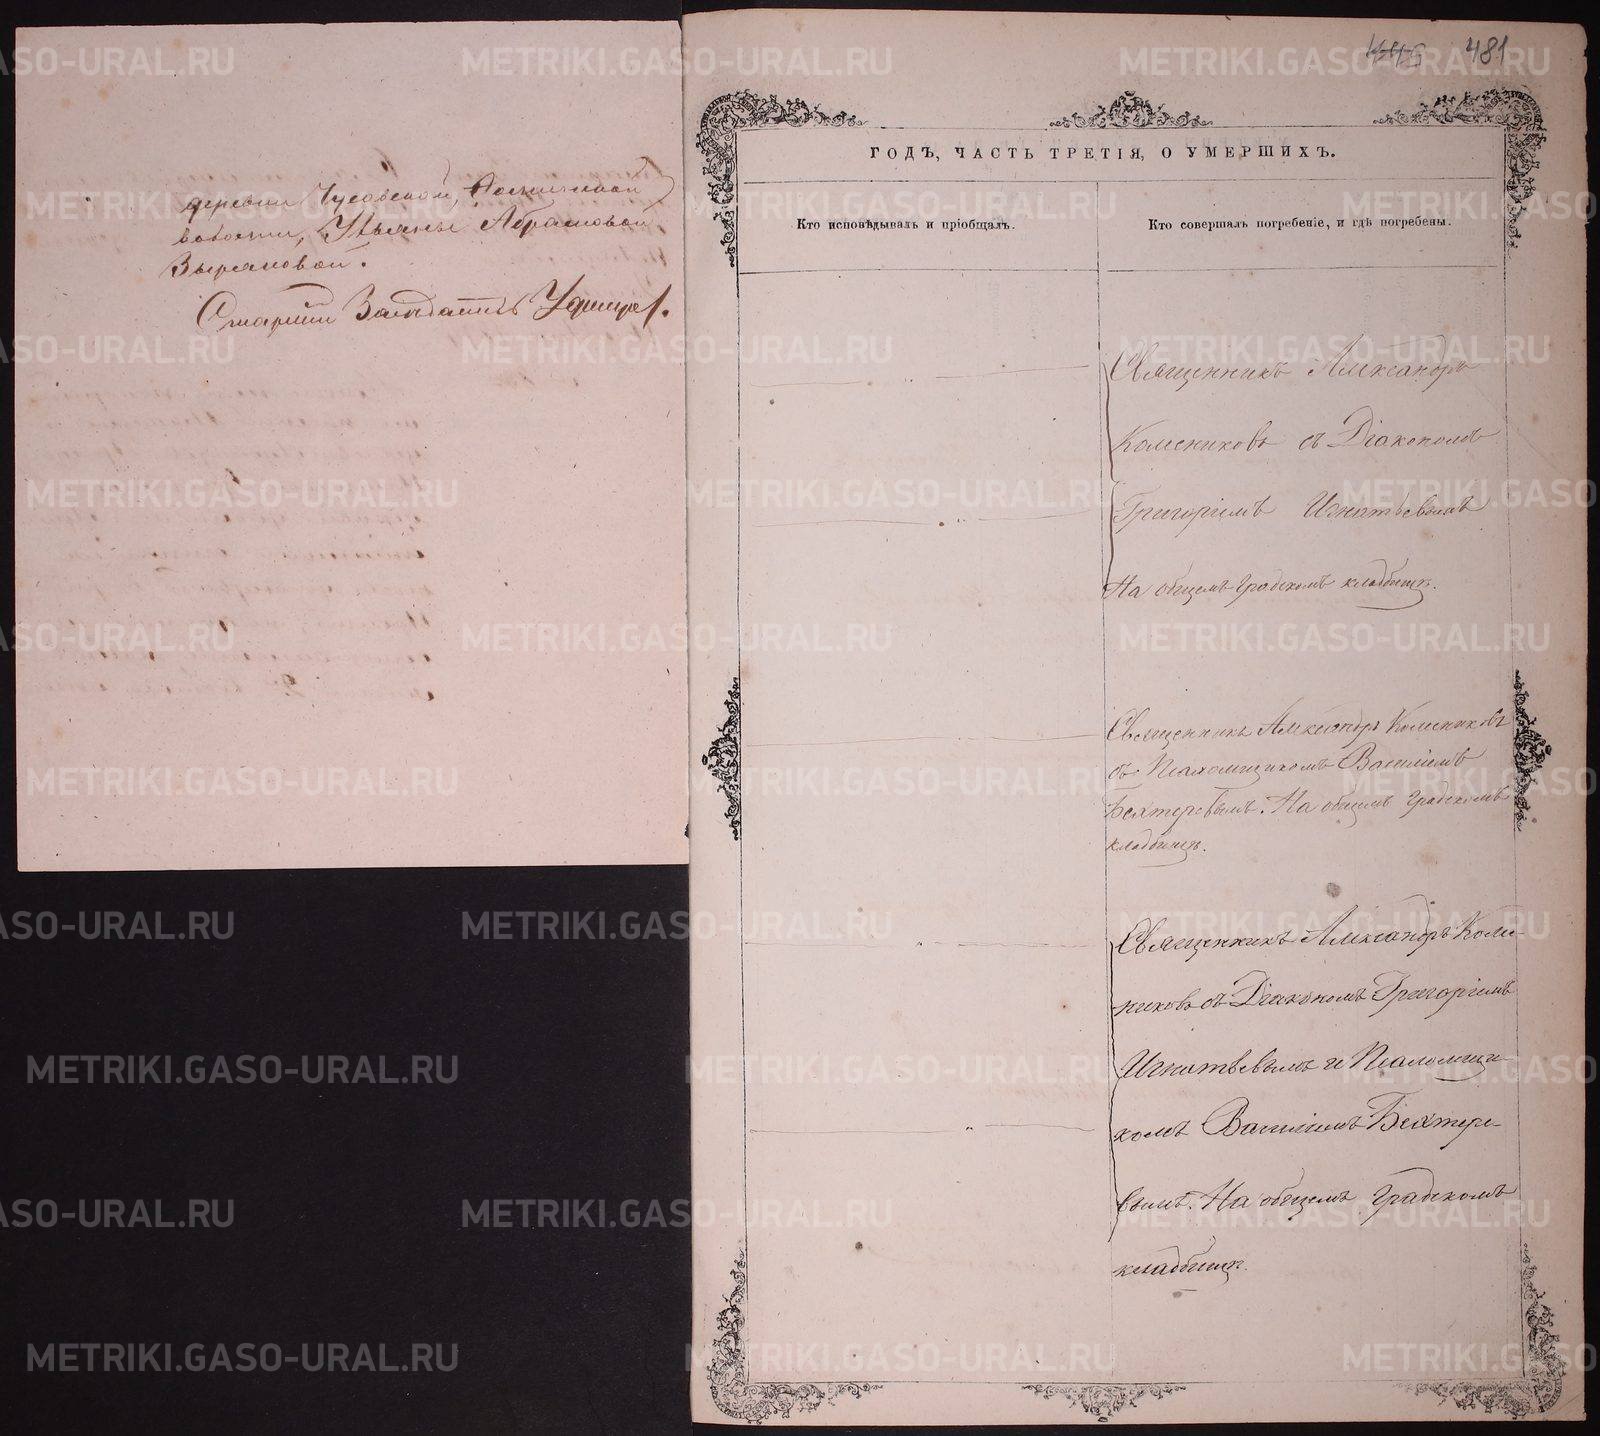 деревни Чусовской,
волости, Ульяны Абрамовой
Зыряновой.
Старший
445 481
ГОДЪ, ЧАСТЬ ТРЕТІЯ, О УМЕРШИХЪ.
Кто исповѣдывалъ и пріобщалъ.
Кто совершалъ погребеніе, и гдѣ погребены.
Священникъ Александръ
Колесниковъ съ Діакономъ
Григоріемъ Игнатьевымъ
На общемъ градскомъ кладбищѣ.
Священникъ Александръ Колесниковъ
съ Псаломщикомъ Василіемъ
Бехтеревымъ. На общемъ градскомъ
кладбищѣ.
Священникъ Александръ Колес-
никовъ съ Діакономъ Григоріемъ
Игнатьевымъ и Псаломщи-
комъ Василіемъ Бехтере-
вымъ. На общемъ градскомъ
кладбищѣ.
METRIKI.GASO-URAL.RU